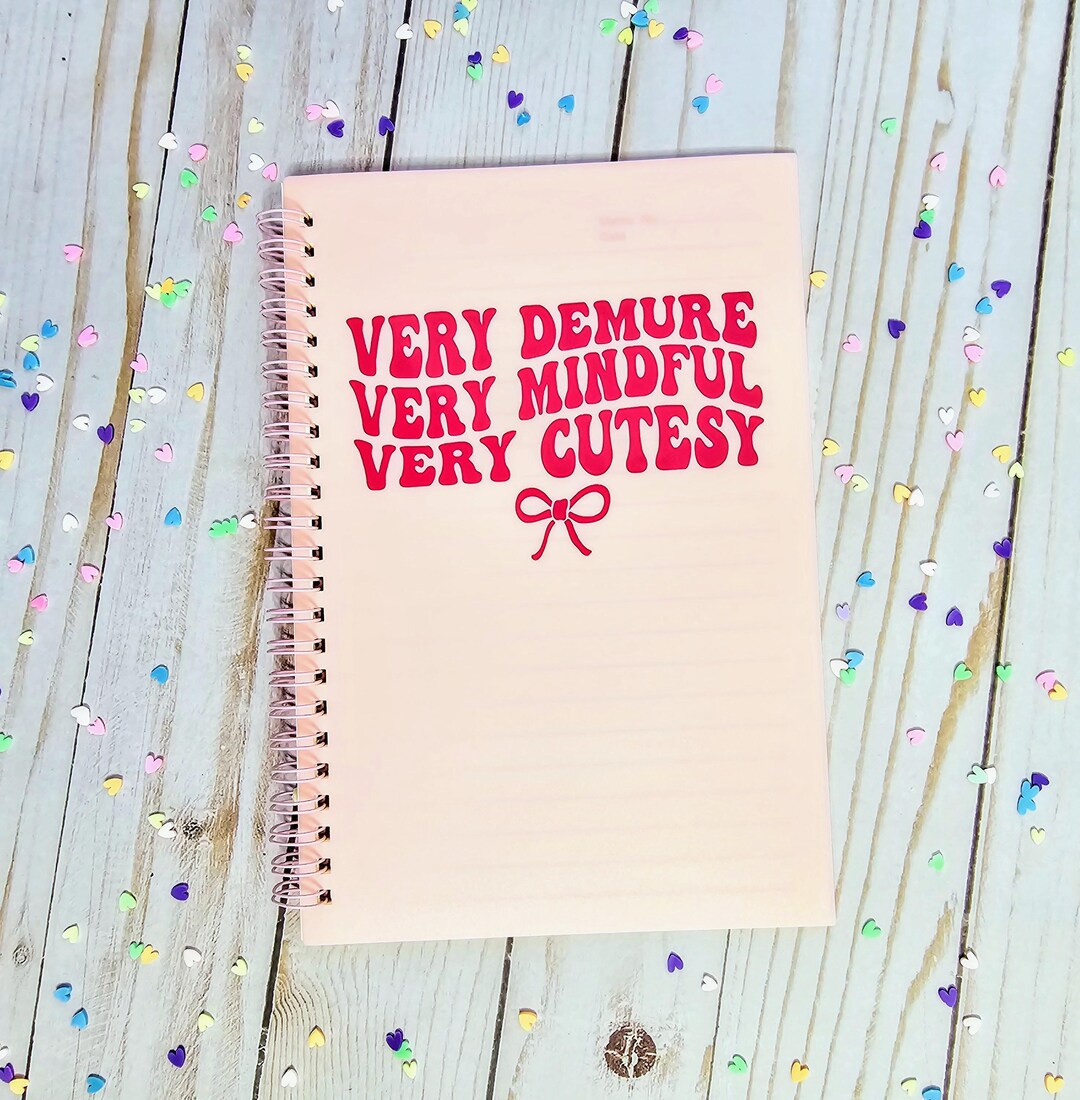 VERY DEMURE
VERY MINDFUL
VERY CUTESY